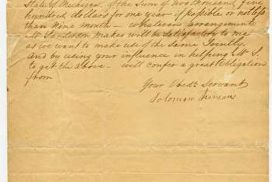 State of Missouri of the Sum of two thousand five
hundred dollars for one year if possible or not less
than Nine month – arrangement
makes will be satisfactory to me
as we want to make use of the Same Jointly,
and by using your influence in helping
to get the above – will confer a great Obligation
from
Your Obdt Servant
Solomon